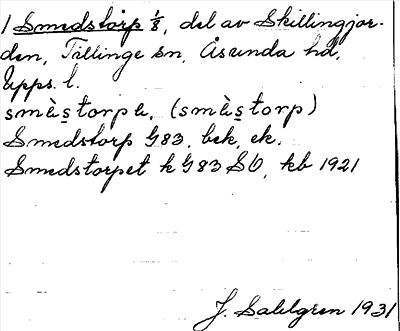 1 Smedstorp 1/8, del av Skillingjor-
den, Tillinge sn, Åsunda hd,
Upps. l.
smès̱torpe, (smès̱torp)
Smedstorp G83, bek, ek.
Smedstorpet k G83 SO, kb 1921
J. Sahlgren 1931